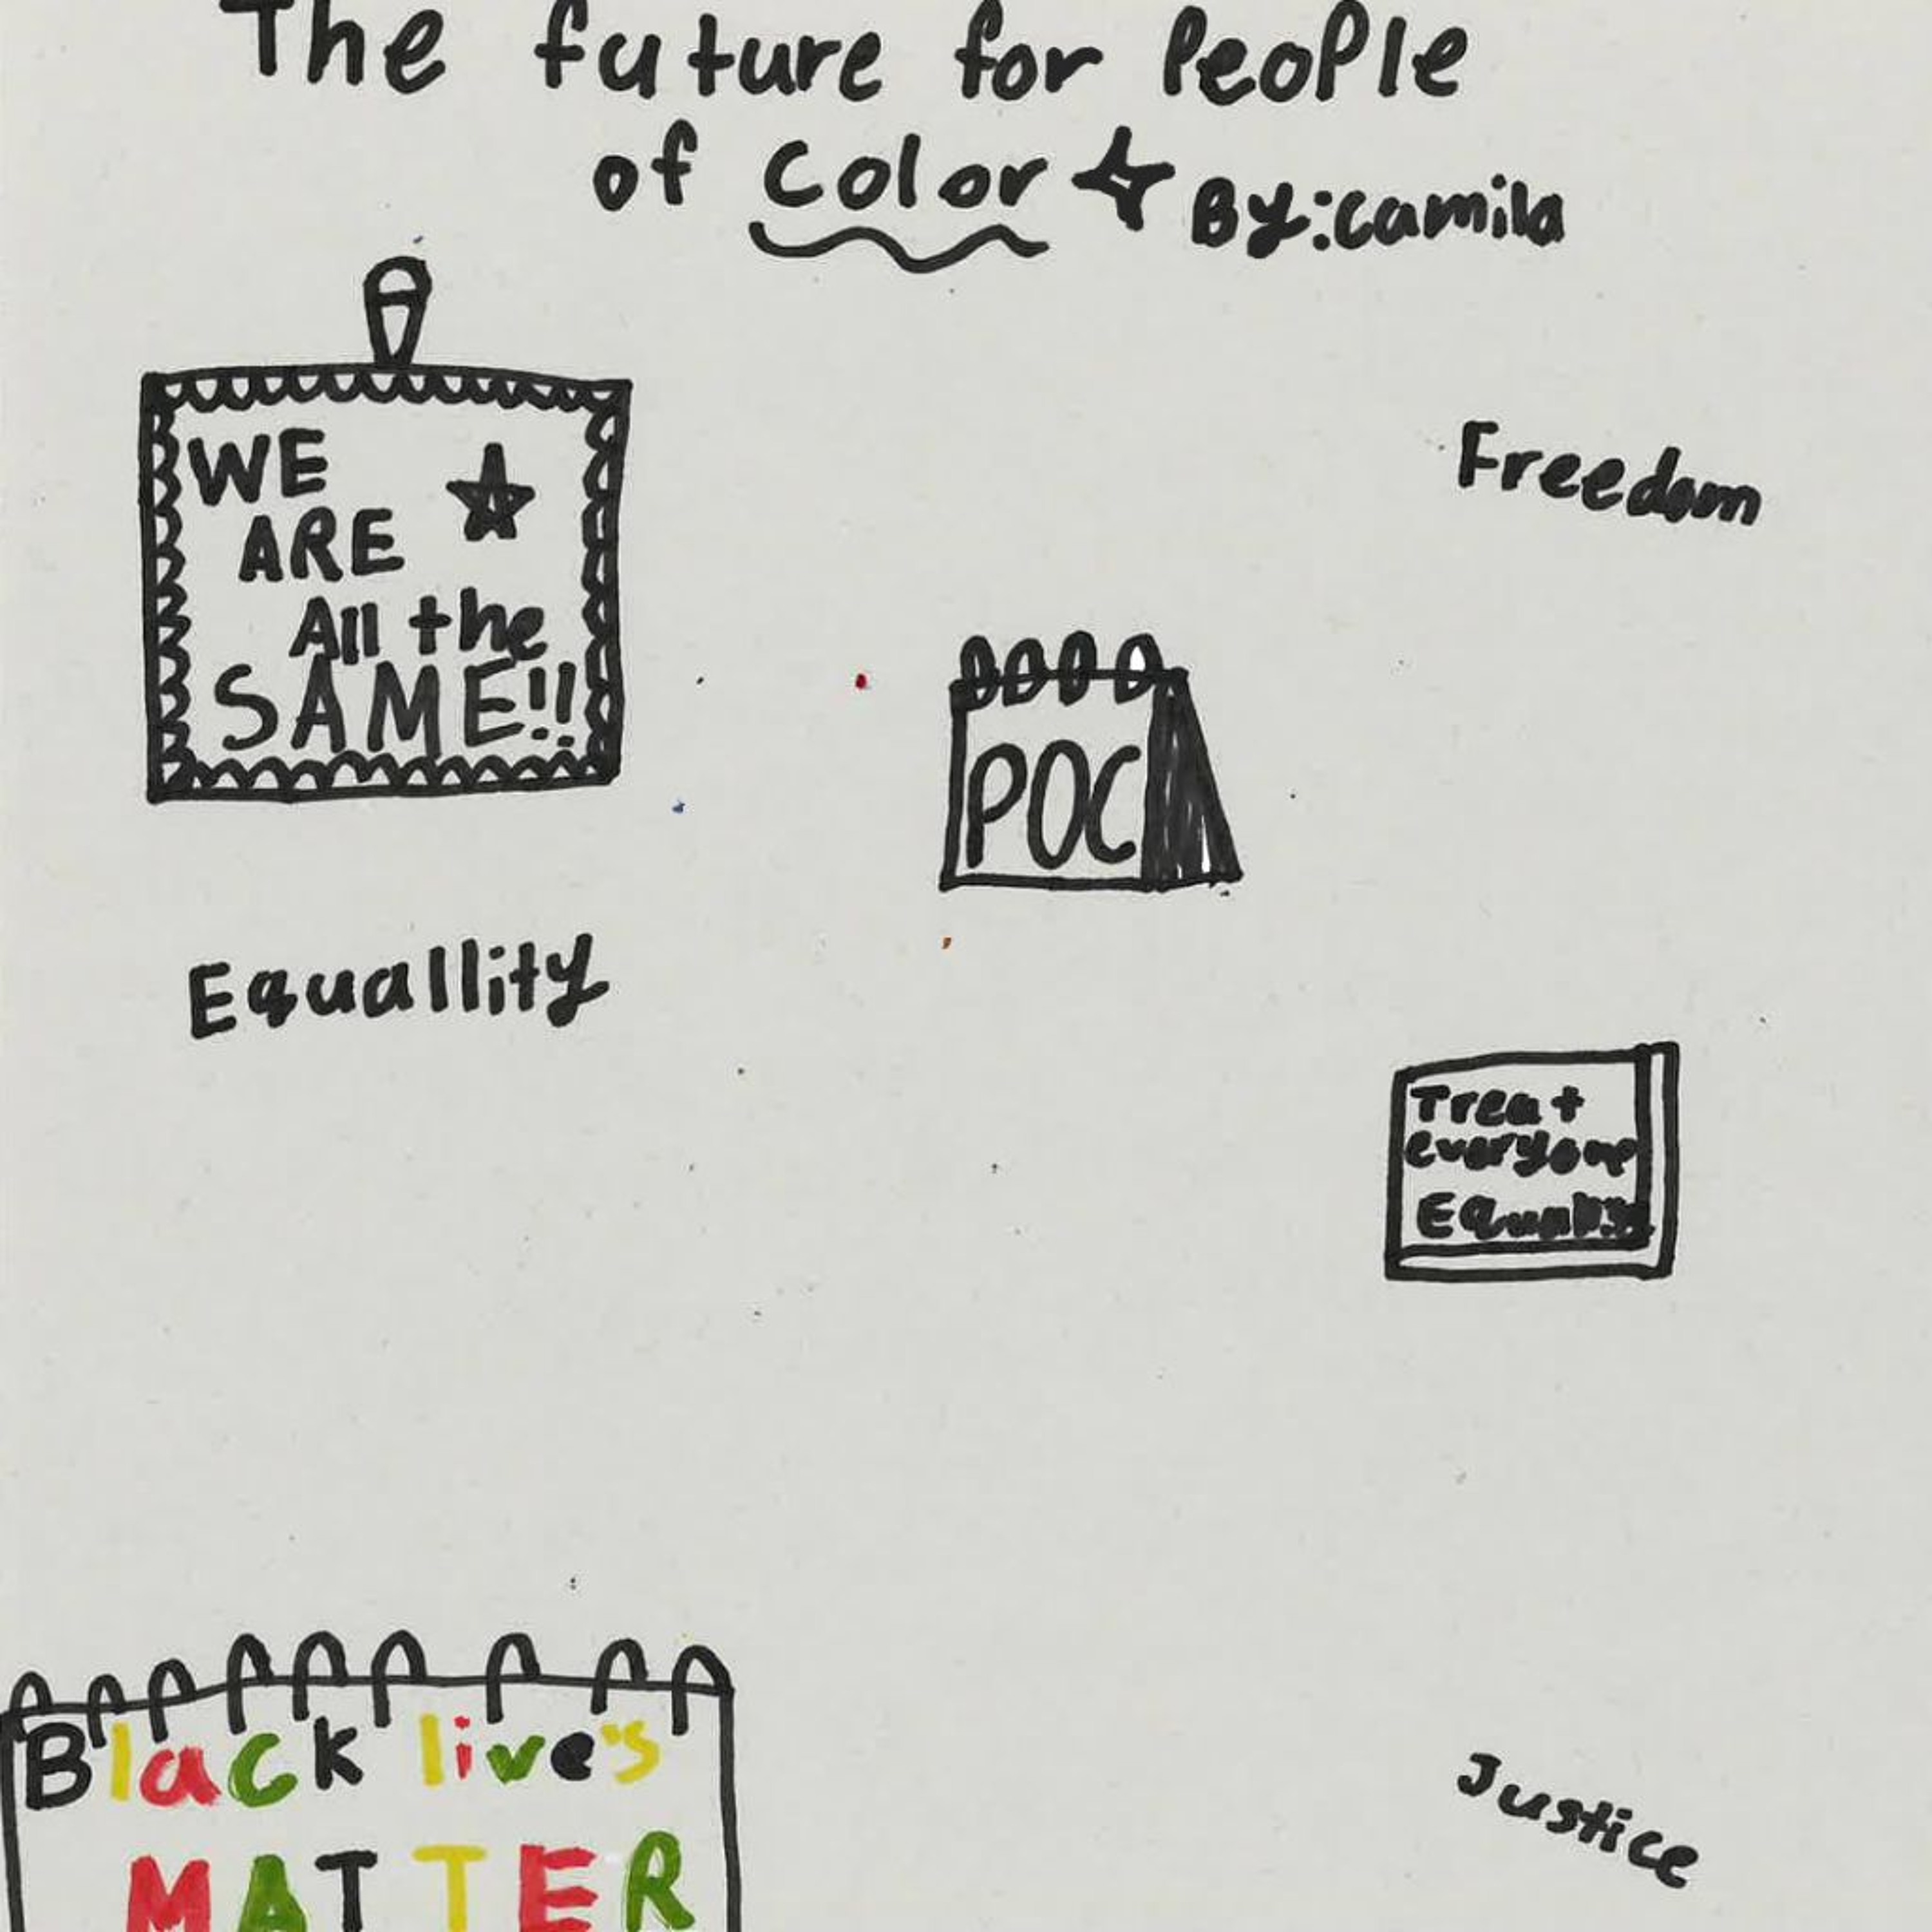 The future for People
of Color By:camila
WE
ARE
All the
SAME!!
Freedom
POC
Equallity
Treat
everyone
Equally
Black live's
MATTER
Justice